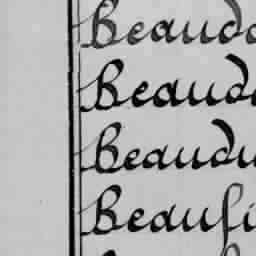 Beaudo
Beaudo
Beaudu
Beaufi